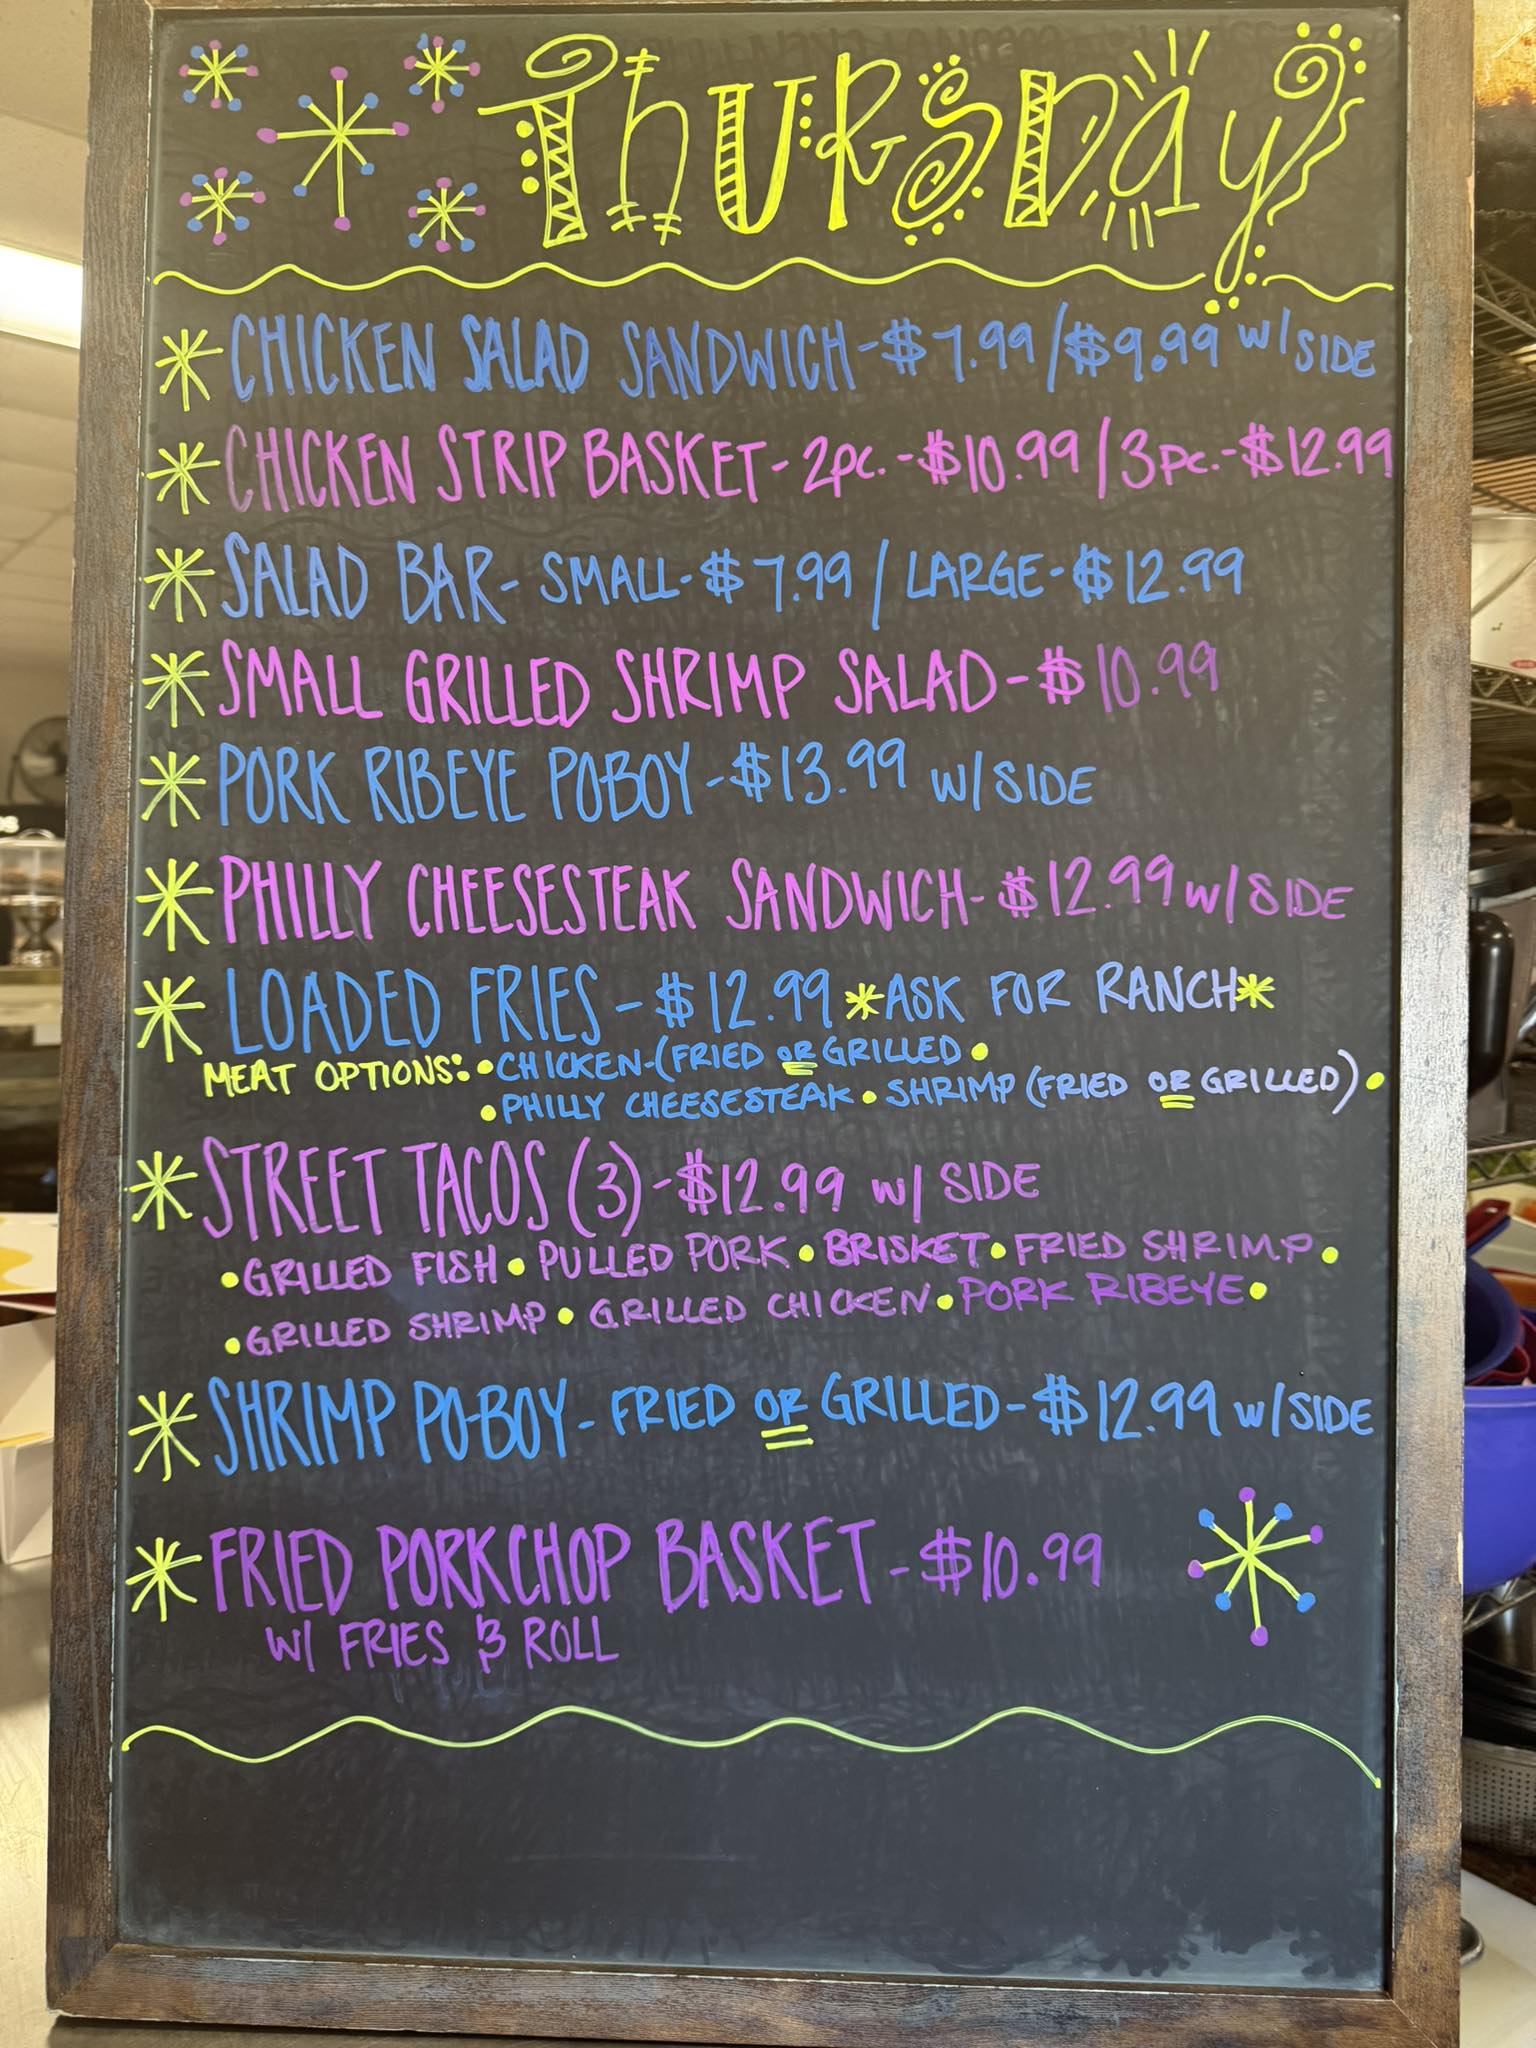 Thursday
CHICKEN SALAD SANDWICH-$7.99/$9.99 W/SIDE
CHICKEN STRIP BASKET-2PC.-$10.99/3PC.-$12.99
SALAD BAR-SMALL-$7.99/LARGE-$12.99
SMALL GRILLED SHRIMP SALAD-$10.99
PORK RIBEYE POBOY-$13.99 W/SIDE
PHILLY CHEESESTEAK SANDWICH-$12.99 W/SIDE
LOADED FRIES-$12.99 *ASK FOR RANCH*
MEAT OPTIONS: •CHICKEN-(FRIED OR GRILLED•
•PHILLY CHEESESTEAK•SHRIMP (FRIED OR GRILLED)•
STREET TACOS (3)-$12.99 W/ SIDE
•GRILLED FISH•PULLED PORK•BRISKET•FRIED SHRIMP•
•GRILLED SHRIMP•GRILLED CHICKEN•PORK RIBEYE•
SHRIMP PO-BOY-FRIED OR GRILLED-$12.99 W/SIDE
FRIED PORKCHOP BASKET-$10.99
W/ FRIES & ROLL